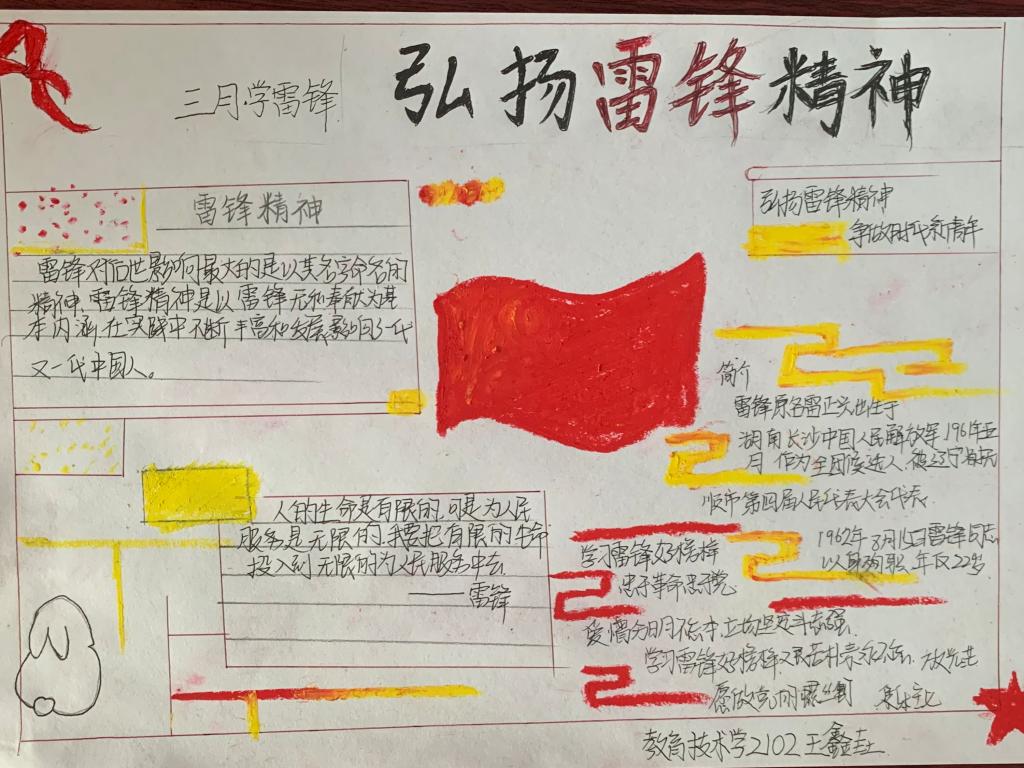 三月·学雷锋
弘扬雷锋精神
雷锋精神
雷锋对后世影响最大的是以其名字命名的
精神.雷锋精神是以雷锋无私奉献为基
本内涵,在实践中不断丰富和发展影响了一代
又一代中国人。
人的生命是有限的.可是为人民
服务是无限的.我要把有限的生命
投入到无限的为人民服务中去
——雷锋
弘扬雷锋精神
争做时代新青年
简介
雷锋原名雷正兴出生于
湖南长沙中国人民解放军1961年五
月 作为 候选人,被辽宁省抚
顺市第四届人民代表大会代表.
1962年8月15日雷锋同志
以身殉职,年仅22岁.
学习雷锋好榜样
忠于革命忠于党
爱憎分明不忘本,立场坚定斗志强
学习雷锋好榜样 艰苦朴素永不忘,
愿做 螺丝钉
教育技术学2102王鑫